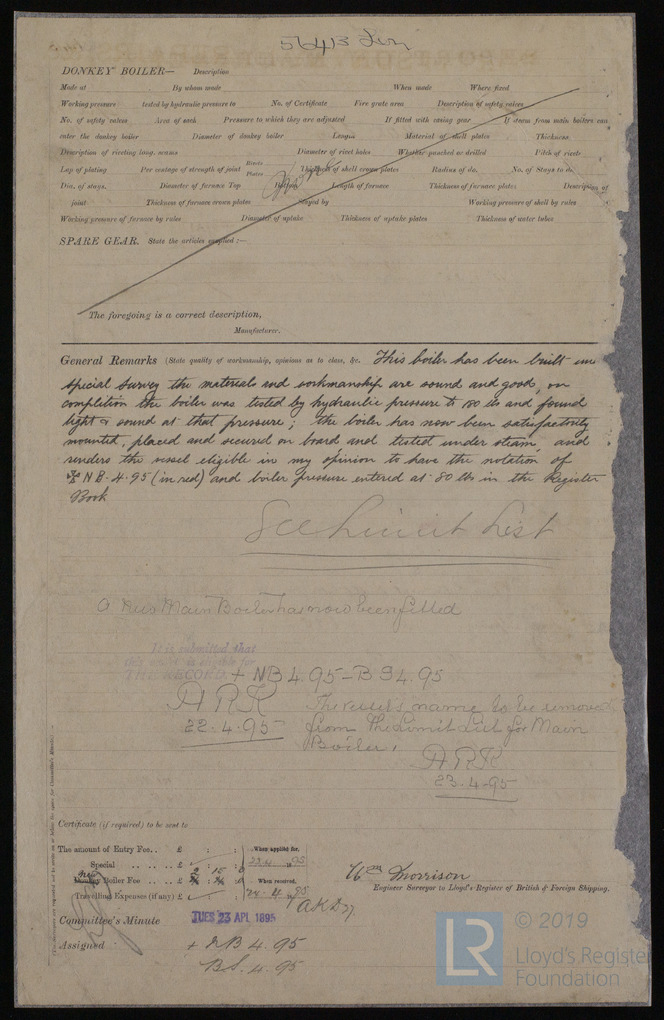 5641B Lin
DONKEY BOILER— Description
Made at By whom made When made Where fixed
Working pressure tested by hydraulic pressure to No. of Certificate Fire grate area Description of safety valves
No. of safety valves Area of each Pressure to which they are adjusted If fitted with easing gear If steam from main boilers can
enter the donkey boiler Diameter of donkey boiler Length Material of shell plates Thickness
Description of riveting long. seams Diameter of rivet holes Whether punched or drilled Pitch of rivets
Lap of plating Per centage of strength of joint Rivets Plates Thickness of shell crown plates Radius of do. No. of Stays to do.
Dia. of stays. Diameter of furnace Top Bottom Length of furnace Thickness of furnace plates Description of
joint Thickness of furnace crown plates Stayed by Working pressure of shell by rules
Working pressure of furnace by rules Diameter of uptake Thickness of uptake plates Thickness of water tubes
SPARE GEAR. State the articles supplied:—
The foregoing is a correct description,
Manufacturer.
General Remarks (State quality of workmanship, opinions as to class, &c. This boiler has been built un
special survey the materials and workmanship are sound and good, on
completion the boiler was tested by hydraulic pressure to 180 lbs and found
tight & sound at that pressure; the boiler has now been satisfactorily
mounted, placed and secured on board and tested under steam, and
renders the vessel eligible in my opinion to have the notation of
NB. 4. 95 (in red) and boiler pressure entered at 80 lbs in the Register
Book
See Limit List
A New Main Boiler has now been fitted
It is submitted that
this vessel is eligible for
THE RECORD + NB 4.95 – BS 4.95
ARK
22.4.95
The vessel's name to be removed
from the Limit List for Main
Boiler.
ARK
23.4.95
Certificate (if required) to be sent to
The amount of Entry Fee.. £ : : When applied for,
Special £ : : 22.4. 1895
Donkey Boiler Fee £ 2 : : When received,
Travelling Expenses (if any) £ : : 24.4. 1895
Wm Morrison
Engineer Surveyor to Lloyd's Register of British & Foreign Shipping.
Committee's Minute TUES 23 APL 1895
Assigned + NB 4.95
BS. 4.95
LR © 2019
Lloyd's Register
Foundation